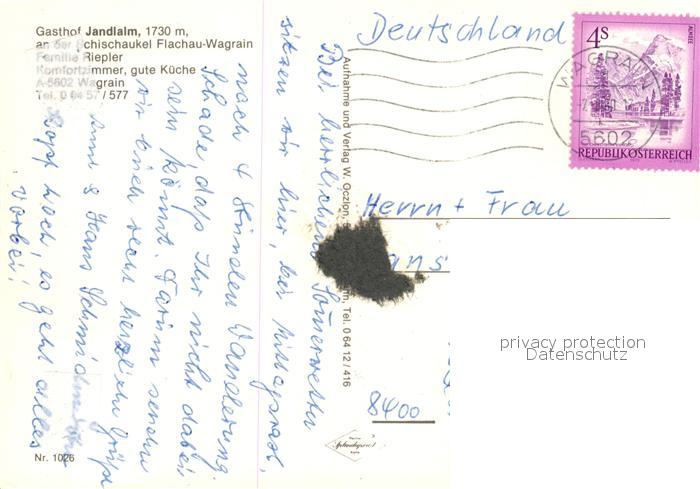 Gasthof Jandlalm, 1730 m,
an der Schischaukel Flachau-Wagrain
Familie Riepler
Komfortzimmer, gute Küche
A-5602 Wagrain
Tel. 0 64 57 / 577
Bei herrlichem Sommerwetter
sitzen wir hier, bei Mittagsrast,
nach 4 Stunden Wanderung.
Schade daß Ihr nicht dabei
sein könnt. Darum senden
wir Euch recht herzliche Grüße
und Hans Schmid
Kopf hoch, es geht alles
vorbei!
Nr. 1026
Aufnahme und Verlag W. Oczlon,
Tel. 0 64 12 / 416
Deutschland
4s
ALMSEE
REPUBLIK ÖSTERREICH
WAGRAIN
5602
Herrn + Frau
ans
8400
privacy protection
Datenschutz